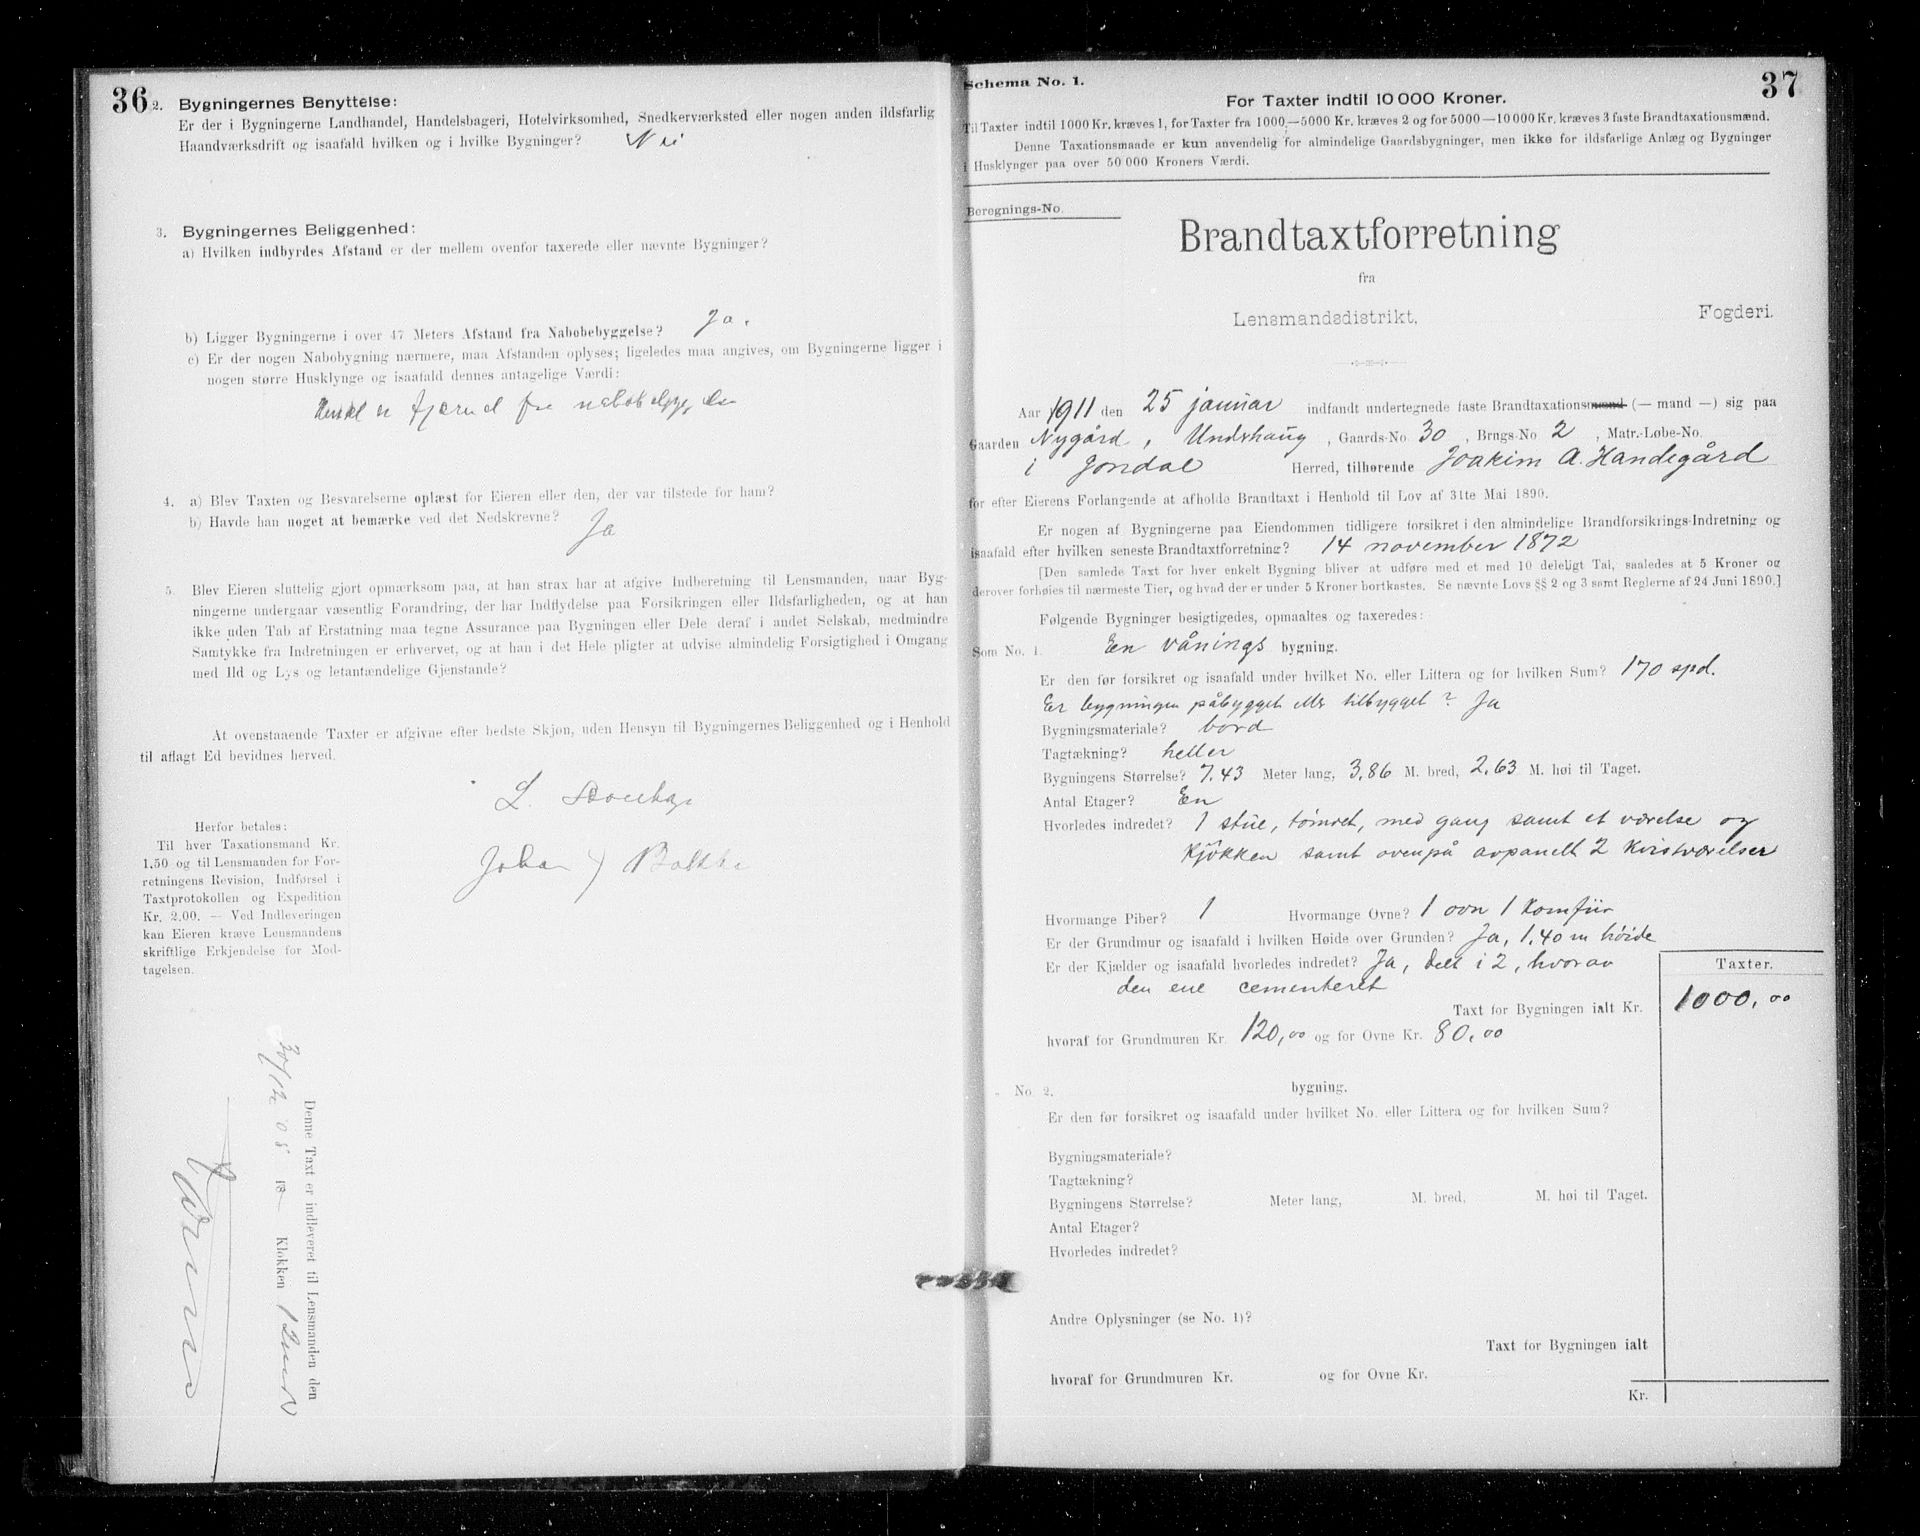 36
2. Bygningernes Benyttelse:
Er der i Bygningerne Landhandel, Handelsbageri, Hotelvirksomhed, Snedkerværksted eller nogen anden ildsfarlig
Haandværksdrift og isaafald hvilken og i hvilke Bygninger? Nei
3. Bygningernes Beliggenhed:
a) Hvilken indbyrdes Afstand er der mellem ovenfor taxerede eller nævnte Bygninger?
b) Ligger Bygningerne i over 47 Meters Afstand fra Nabobebyggelse? Ja.
c) Er der nogen Nabobygning nærmere, maa Afstanden oplyses; ligeledes maa angives, om Bygningerne ligger i
nogen større Husklynge og isaafald dennes antagelige Værdi:
fjærnet fra
4. a) Blev Taxten og Besvarelserne oplæst for Eieren eller den, der var tilstede for ham?
b) Havde han noget at bemærke ved det Nedskrevne? Ja
5. Blev Eieren sluttelig gjort opmærksom paa, at han strax har at afgive Indberetning til Lensmanden, naar Byg-
ningerne undergaar væsentlig Forandring, der har Indflydelse paa Forsikringen eller Ildsfarligheden, og at han
ikke uden Tab af Erstatning maa tegne Assurance paa Bygningen eller Dele deraf i andet Selskab, medmindre
Samtykke fra Indretningen er erhvervet, og at han i det Hele pligter at udvise almindelig Forsigtighed i Omgang
med Ild og Lys og letantændelige Gjenstande?
At ovenstaaende Taxter er afgivne efter bedste Skjøn, uden Hensyn til Bygningernes Beliggenhed og i Henhold
til aflagt Ed bevidnes herved.
L.
Johan
Herfor betales:
Til hver Taxationsmand Kr.
1.50 og til Lensmanden for For-
retningens Revision, Indførsel i
Taxtprotokollen og Expedition
Kr. 2.00. — Ved Indleveringen
kan Eieren kræve Lensmandens
skriftlige Erkjendelse for Mod-
tagelsen.
Denne Taxt er indleveret til Lensmanden den
30/12 08 18 Klokken 12
37
Schema No. 1.
For Taxter indtil 10 000 Kroner.
Til Taxter indtil 1000 Kr. kræves 1, for Taxter fra 1000—5000 Kr. kræves 2 og for 5000—10000 Kr. kræves 3 faste Brandtaxationsmænd.
Denne Taxationsmaade er kun anvendelig for almindelige Gaardsbygninger, men ikke for ildsfarlige Anlæg og Bygninger
i Husklynger paa over 50 000 Kroners Værdi.
Beregnings-No.
Brandtaxtforretning
fra
Lensmandsdistrikt, Fogderi.
Aar 1911 den 25 januar indfandt undertegnede faste Brandtaxationsmænd (— mand —) sig paa
Gaarden Nygård, Undshaug, Gaards-No 30, Brugs-No 2, Matr.-Løbe-No.
i Jondal Herred, tilhørende Joakim A. Handegård
for efter Eierens Forlangende at afholde Brandtaxt i Henhold til Lov af 31te Mai 1890.
Er nogen af Bygningerne paa Eiendommen tidligere forsikret i den almindelige Brandforsikrings-Indretning og
isaafald efter hvilken seneste Brandtaxtforretning? 14 november 1872
[Den samlede Taxt for hver enkelt Bygning bliver at udføre med et med 10 deleligt Tal, saaledes at 5 Kroner og
derover forhøies til nærmeste Tier, og hvad der er under 5 Kroner bortkastes. Se nævnte Lovs §§ 2 og 3 samt Reglerne af 24 Juni 1890.]
Følgende Bygninger besigtigedes, opmaaltes og taxeredes:
Som No. 1. En vånings bygning.
Er den før forsikret og isaafald under hvilket No. eller Littera og for hvilken Sum? 170 spd.
Er bygningen påbygget eller tilbygget? Ja
Bygningsmateriale? bord
Tagtækning? heller
Bygningens Størrelse? 7,43 Meter lang, 3,86 M. bred, 2,63 M. høi til Taget.
Antal Etager? En
Hvorledes indredet? 1 stue, tømret, med gang samt et værelse og
kjøkken samt ovenpå avpanelt 2 kvistværelser
Hvormange Piber? 1 Hvormange Ovne? 1 ovn 1 komfur
Er der Grundmur og isaafald i hvilken Høide over Grunden? Ja, 1,40 m høide
Er der Kjælder og isaafald hvorledes indredet? Ja, delt i 2, hvorav
den ene cementeret
Taxter.
Taxt for Bygningen ialt Kr. 1000,00
hvoraf for Grundmuren Kr. 120,00 og for Ovne Kr. 80,00
No. 2. bygning.
Er den før forsikret og isaafald under hvilket No. eller Littera og for hvilken Sum?
Bygningsmateriale?
Tagtækning?
Bygningens Størrelse? Meter lang, M. bred, M. høi til Taget.
Antal Etager?
Hvorledes indredet?
Andre Oplysninger (se No. 1)?
Taxt for Bygningen ialt
hvoraf for Grundmuren Kr. og for Ovne Kr.
Kr.